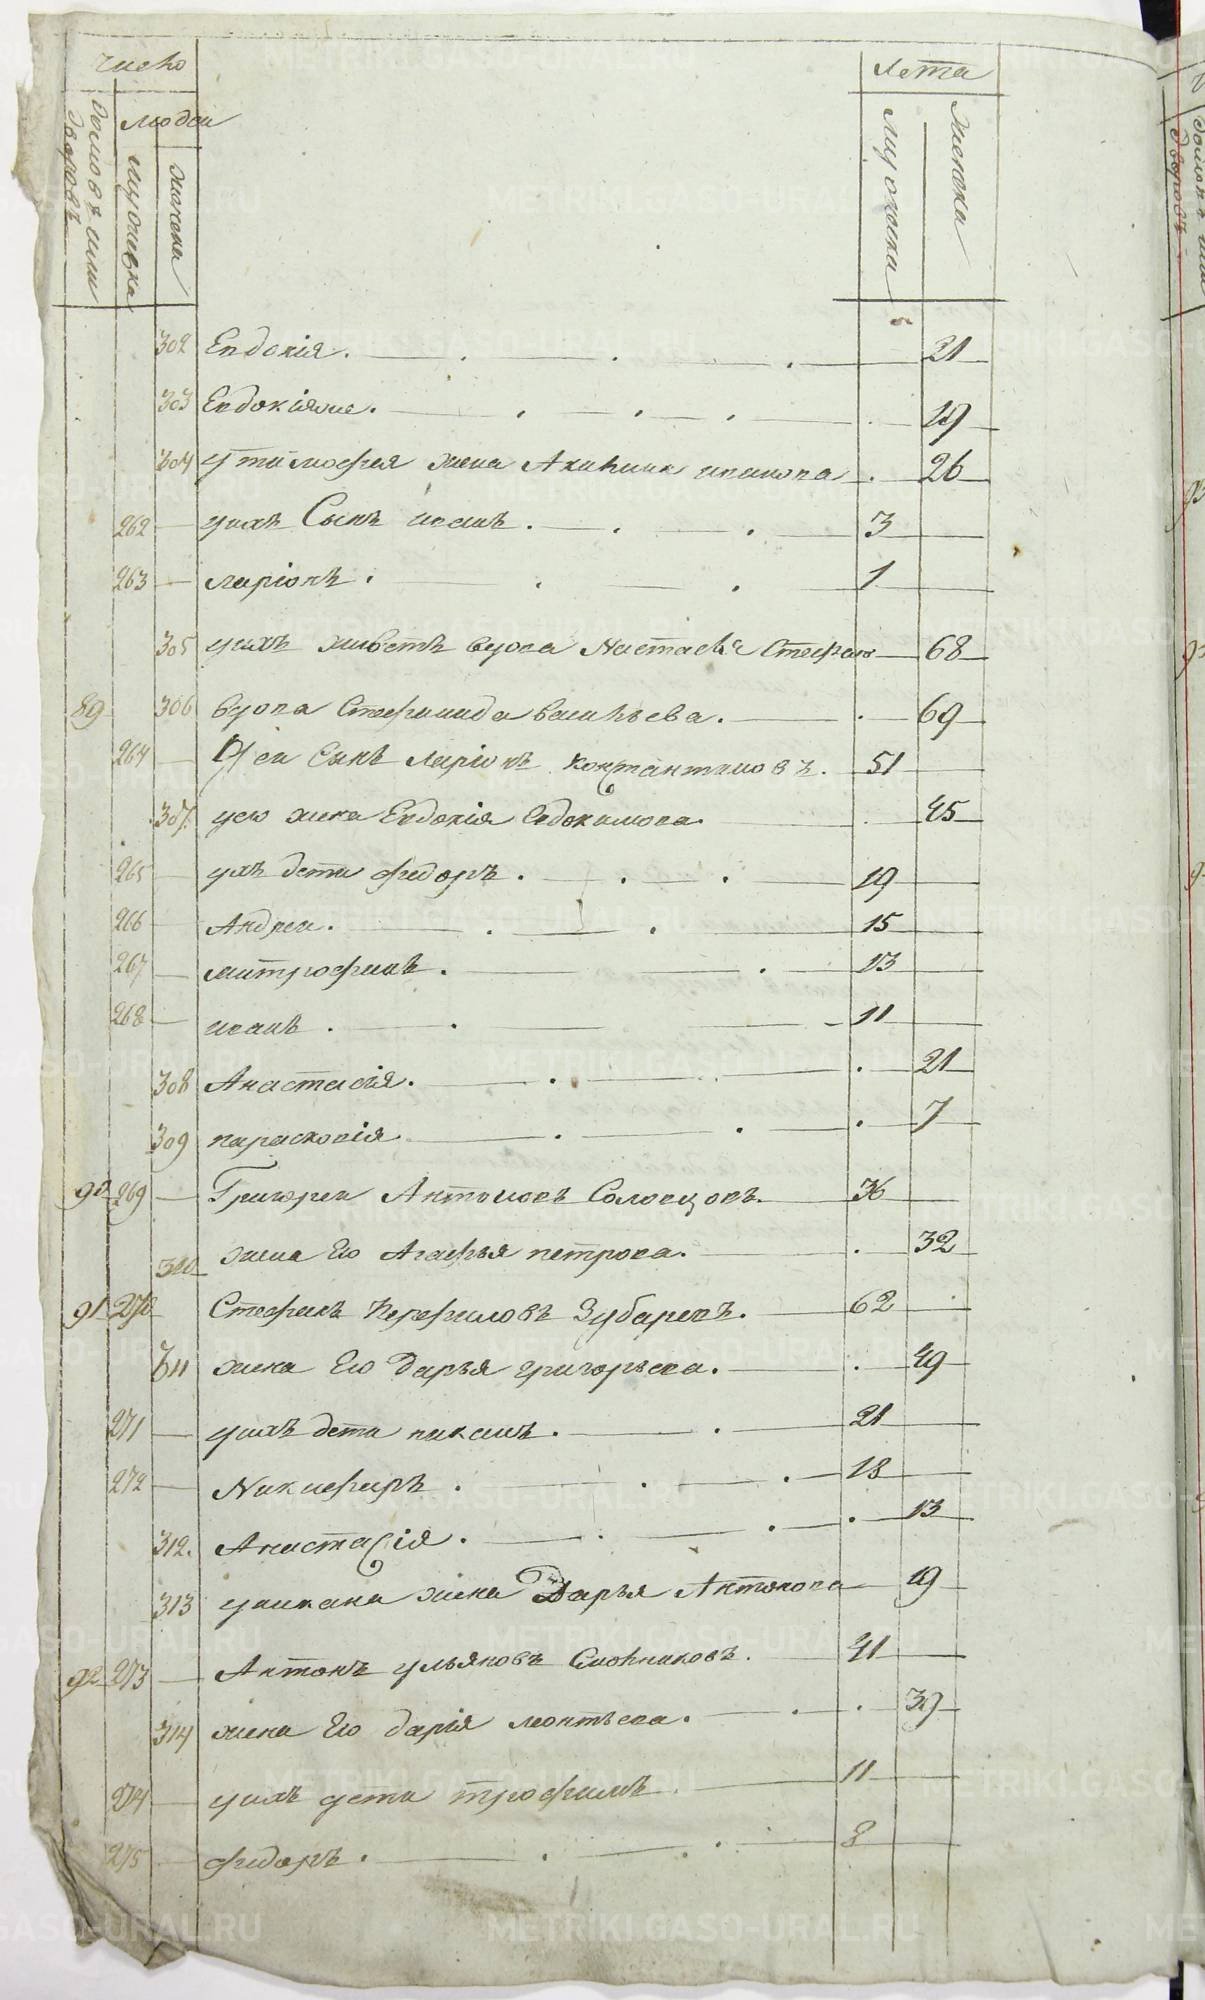 число
лета
домовъ или дворовъ
людеи
мужеска
женска
мужеска
женска
302 Евдокія. 21
303 Евдокіяже. 19
304 утимофея жена Акилина иванова 26
262 унихъ Сынъ иванъ. 3
263 ларіонъ. 1
305 унихъ живетъ вдова Настасья Стефан 68
89 306 вдова Стефанида васильева. 69
264 Уеи сынъ Ларіонъ Константиновъ. 51
307. уево жена Евдокія Евдокимова. 45
265 ихъ дети федоръ. 19
266 Андреи. 15
267 митрофанъ. 13
268 иванъ. 11
308 Анастасія. 21
309 парасковія 7
90 269 Григореи Антоновъ Соловцовъ. 36
310 жена Ево Агафья петрова. 32
91 270 Стефанъ Перфиловъ Зубаревъ. 62
311 жена Ево Дарья григорьева. 49
271 унихъ дети никанъ. 21
272 Никифоръ. 18
312. Анастасія. 13
313 уникана жена Дарья Антонова 19
92 273 Антонъ ульяновъ 41
314 жена Ево дарія леонтьева. 39
274 унихъ дети трофимъ 11
275 федоръ. 8
METRIKI.GASO-URAL.RU